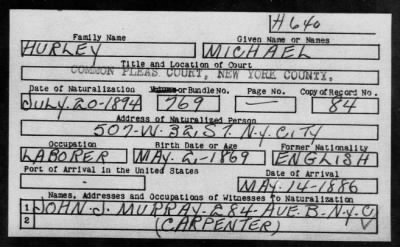 H640
Family Name Given Name or Names
HURLEY MICHAEL
Title and Location of Court
COMMON PLEAS COURT, NEW YORK COUNTY.
Date of Naturalization Volume or Bundle No. Page No. Copy of Record No.
JULY-20-1894 769 — 84
Address of Naturalized Person
507-W-32-ST. N.Y. CITY
Occupation Birth Date or Age Former Nationality
LABORER MAY-2-1869 ENGLISH
Port of Arrival in the United States Date of Arrival
- MAY-14-1886
Names, Addresses and Occupations of Witnesses to Naturalization
1 JOHN-J-MURRAY-284-AVE.B-N.Y.C
2 (CARPENTER)